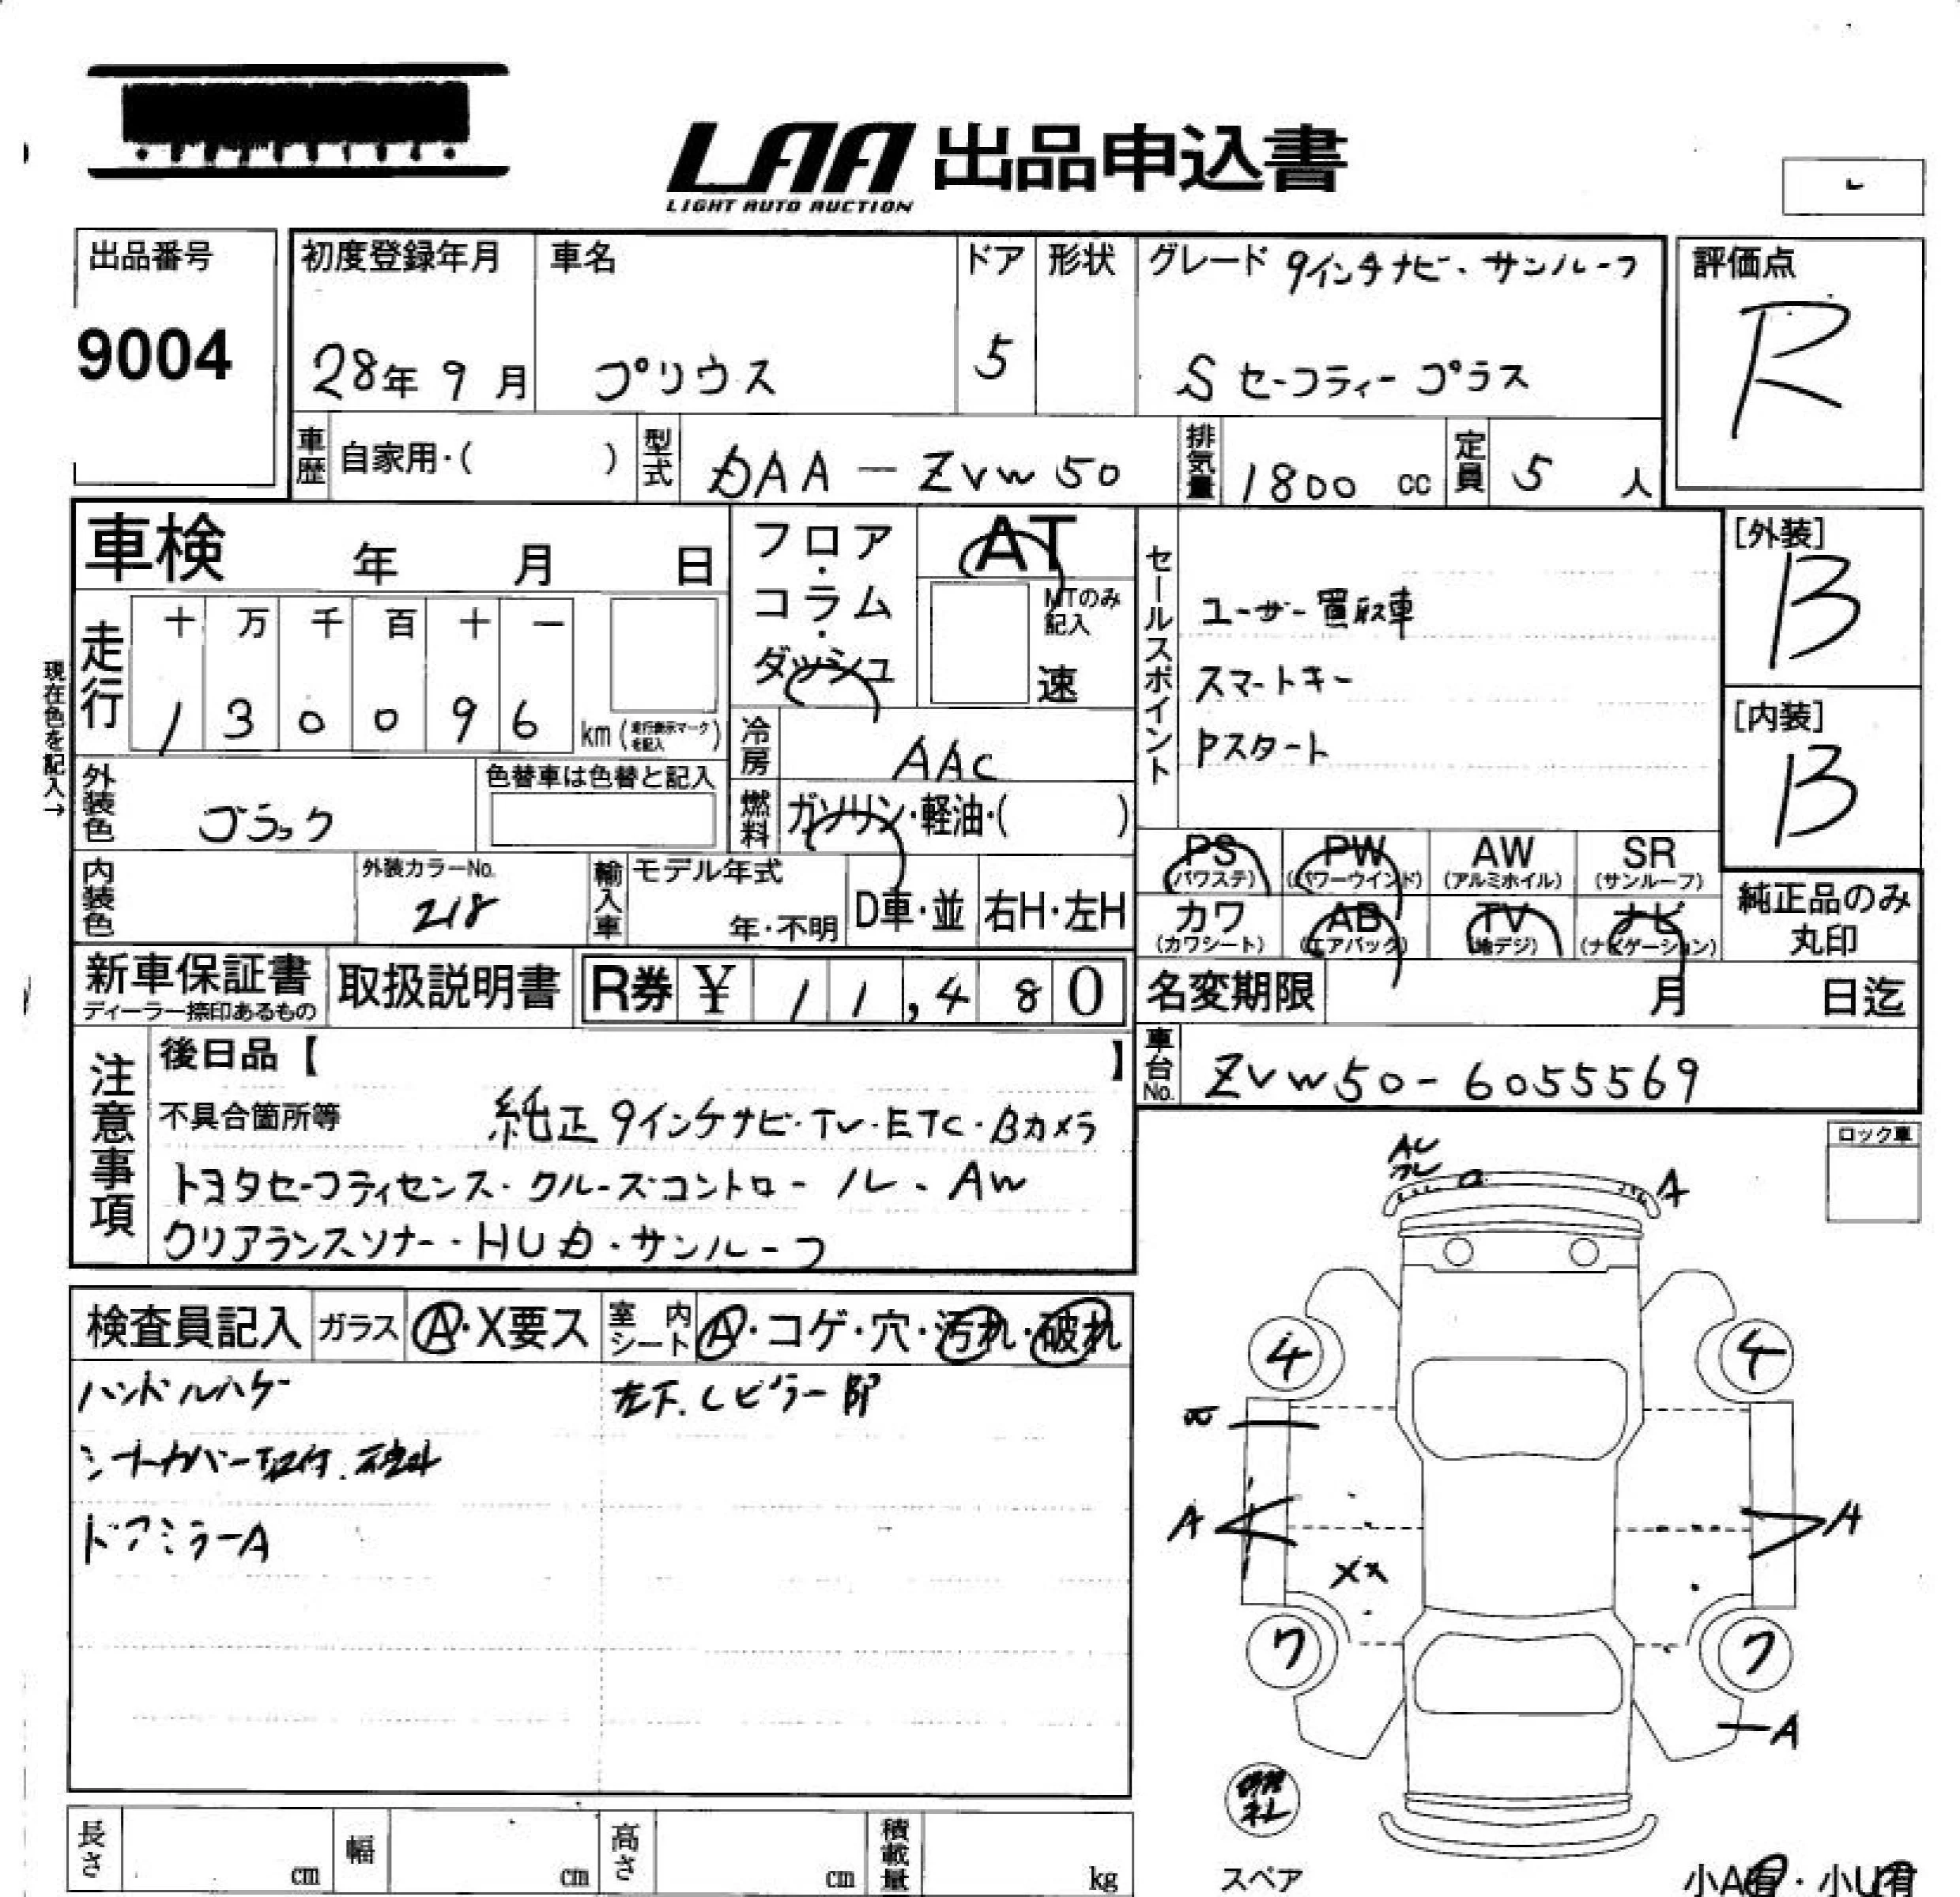 LAA 出品申込書
LIGHT AUTO AUCTION
出品番号
9004
初度登録年月
28年 9月
車名
プリウス
ドア
5
形状
グレード 9インチナビ・サンルーフ
S セーフティープラス
評価点
R
車歴 自家用・( )
型式 DAA-ZVW50
排気量 1800 cc
定員 5 人
車検 年 月 日
フロア・コラム・ダッシュ
AT
MTのみ記入
速
セールスポイント
ユーザー買取車
スマートキー
Pスタート
[外装]
B
[内装]
B
現在色を記入→
走行
十 万 千 百 十 一
1 3 0 0 9 6 km (走行表示マークを記入)
冷房 AAC
外装色 ブラック
色替車は色替と記入
燃料 ガソリン・軽油・( )
内装色
外装カラーNo.
218
輸入車
モデル年式
年・不明
D車・並
右H・左H
PS (パワステ)
PW (パワーウインド)
AW (アルミホイル)
SR (サンルーフ)
カワ (カワシート)
AB (エアバック)
TV (地デジ)
ナビ (ナビゲーション)
純正品のみ
丸印
新車保証書
ディーラー捺印あるもの
取扱説明書
R券 ¥ 11,480
名変期限 月 日迄
車台No. ZVW50-6055569
注意事項
後日品【 】
不具合箇所等 純正9インチナビ・TV・ETC・Bカメラ
トヨタセーフティセンス・クルーズコントロール・AW
クリアランスソナー・HUD・サンルーフ
ロック車
検査員記入
ガラス A・X要ス
室内シート A・コゲ・穴・汚れ・破れ
ハンドルハゲ
シートカバー取付.
ドアミラーA
左下.Cピラー部
A
4
4
A
A
XX
7
7
A
スペア
小A有・小U有
長さ cm
幅 cm
高さ cm
積載量 kg